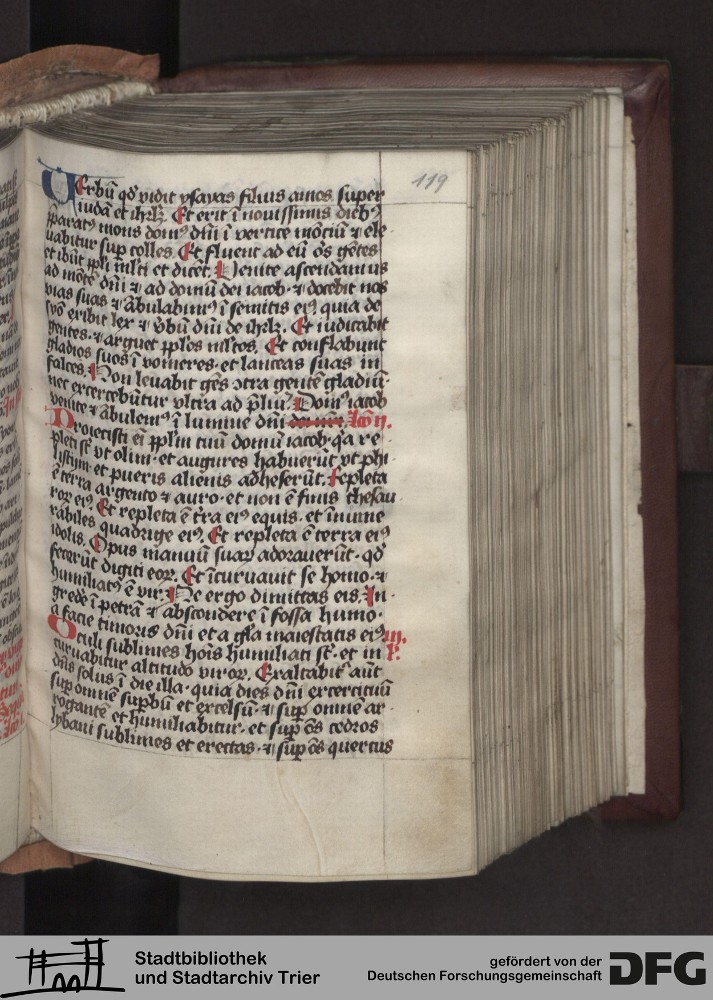 119
Uerbū qd̄ vidit ysayas filius amos super
iudā et ihrl̄z. Et erit ī nouissimis dieb⁹
p̄parat⁹ mons dom⁹ dn̄i ī vertice mōciū ⁊ ele
uabitur sup̄ colles. Et fluent ad eū ōs gētes
et ibūt ppl̄i ml̄ti et dicēt. Uenite ascendamus
ad mōtē dn̄i ⁊ ad domū dei iacob ⁊ docebit nos
vias suas ⁊ ābulabim⁹ ī semitis ei⁹. quia de
syō exibit lex ⁊ v̄bū dn̄i de ihrl̄z. Et iudicabit
gentes ⁊ arguet ppl̄os ml̄tos. Et conflabunt
gladios suos ī vomeres et lanceas suas in
falces. Non leuabit gēs ↄtra gentē gladiū
nec exercebūtur vltra ad p̄liū. Dom⁹ iacob
venite ⁊ ābulem⁹ ī lumine dn̄i Lc̄o ij.
Proiecisti ei ppl̄m tuū domū iacob. q̄a re
pleti st̄ vt olim et augures habuerūt vt phi
listiim et pueris alienis adheserūt. Repleta
ē terra argento ⁊ auro et non ē finis thesau
ror̄ ei⁹. Et repleta ē t̄ra ei⁹ equis et īnume
rabiles quadrige ei⁹. Et repleta ē terra ei⁹
idolis. Opus manuū suar̄ adorauerūt qd̄
fecerūt digiti eor̄. Et īcuruauit se homo ⁊
humiliat⁹ ē vir. Ne ergo dimittas eis. In
gredē ī petrā ⁊ abscondere ī fossa humo
a facie timoris dn̄i et a gl̄a maiestatis ei⁹ iij.
Oculi sublimes hoīs humiliati st̄ et in L.
curuabitur altitudo viror̄. Exaltabit̄ aūt
dn̄s solus ī die illa. quia dies dn̄i exercituū
sup̄ omnē sup̄bū et excelsū ⁊ sup̄ omnē ar
rogantē et humiliabitur. et sup̄ ōs cedros
lybani sublimes et erectas ⁊ sup̄ ōs quercus
Stadtbibliothek
und Stadtarchiv Trier
gefördert von der
Deutschen Forschungsgemeinschaft
DFG